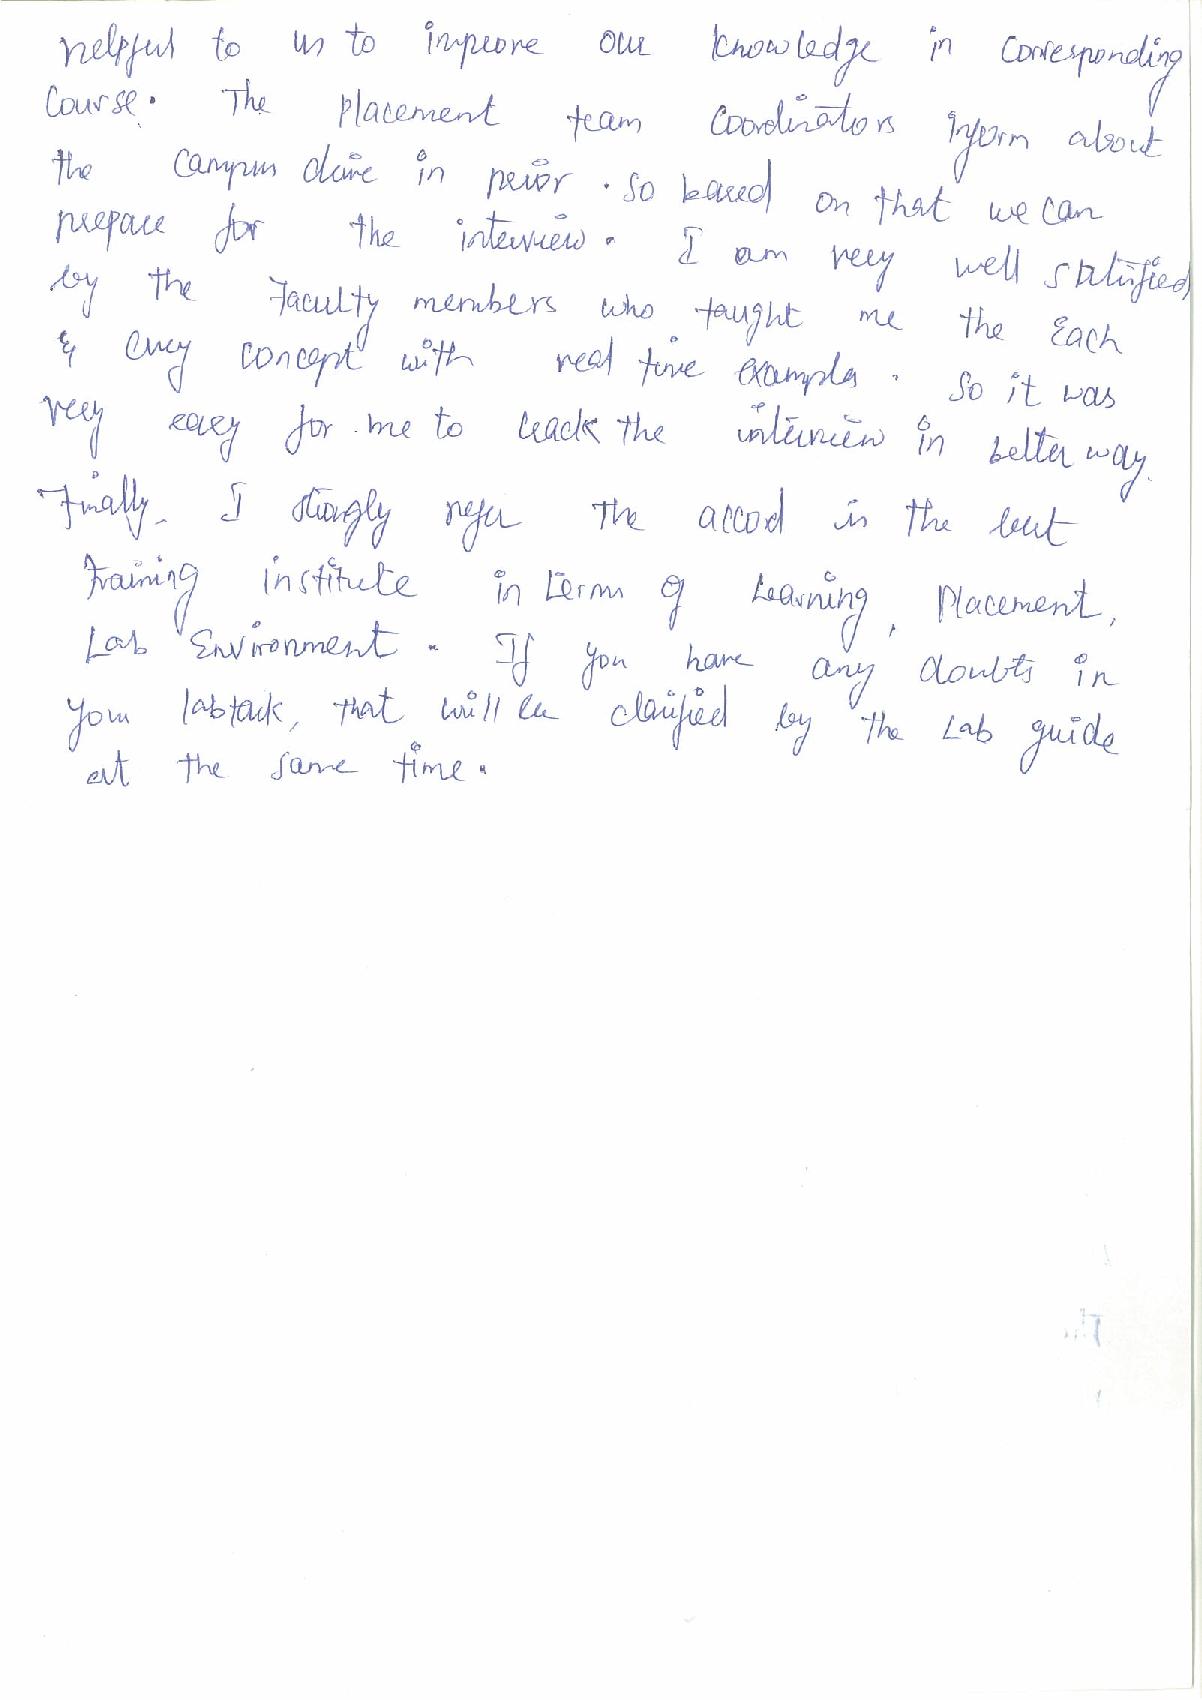 helpful to us to improve our knowledge in corresponding
Course. The Placement team Coordinators inform about
the Campus drive in prior. So based on that we can
prepare for the interview. I am very well satisfied
by the Faculty members who taught me the Each
& Every concept with real time examples. So it was
very easy for me to crack the interview in better way.
Finally, I strongly refer the accord is the best
Training institute in terms of Learning, Placement,
Lab Environment. If you have any doubts in
your labtask, that will be clarified by the Lab guide
at the same time.